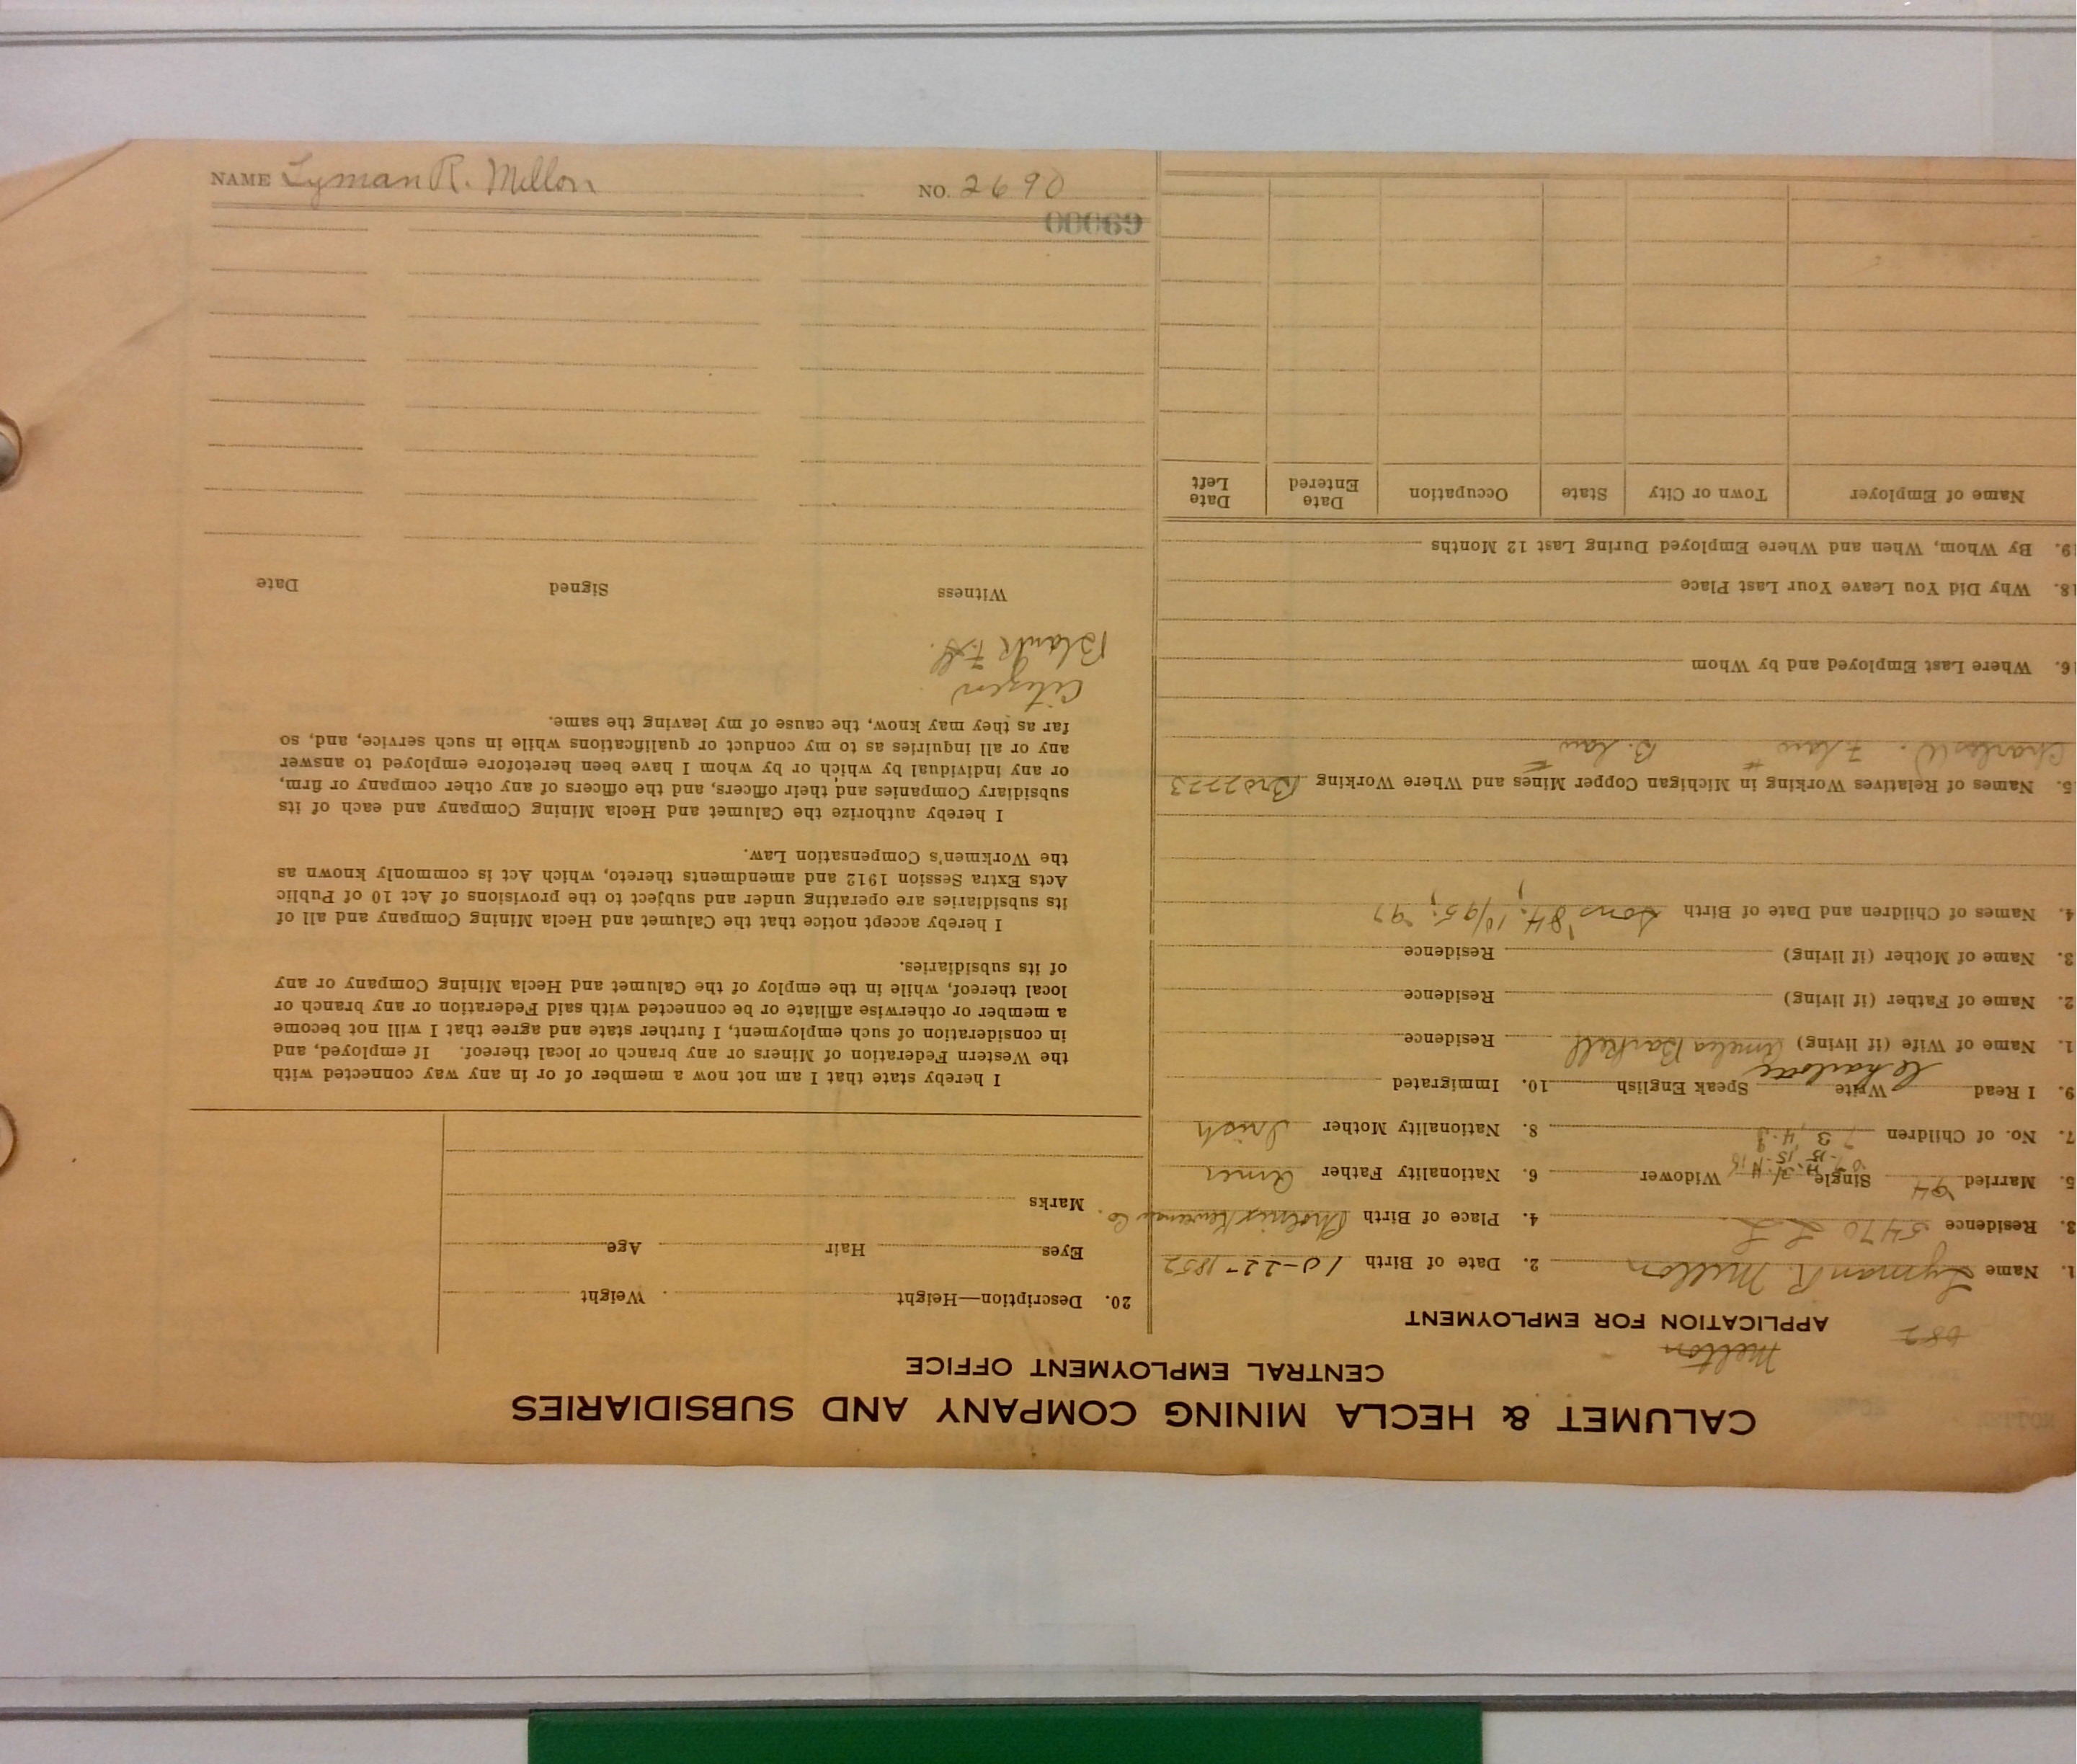 NAME Lyman R. Mellon NO. 2690
00069
CALUMET & HECLA MINING COMPANY AND SUBSIDIARIES
CENTRAL EMPLOYMENT OFFICE
Melton
682
APPLICATION FOR EMPLOYMENT
1. Name Lyman R. Mellon 2. Date of Birth 10-22-1852
3. Residence 5470 L L 4. Place of Birth Phoenix Keweenaw Co.
5. Married Single Widower 6. Nationality Father Amer
7. No. of Children 8. Nationality Mother Irish
9. I Read Write Speak English 10. Immigrated
1. Name of Wife (if living) Amelia Residence
2. Name of Father (if living) Residence
3. Name of Mother (if living) Residence
4. Names of Children and Date of Birth Sons '84; 10/95; '97
5. Names of Relatives Working in Michigan Copper Mines and Where Working Bro 2773
Charles W. F. law B. law
6. Where Last Employed and by Whom
18. Why Did You Leave Your Last Place
19. By Whom, When and Where Employed During Last 12 Months
Name of Employer Town or City State Occupation Date Entered Date Left
20. Description—Height Weight
Eyes Hair Age
Marks
I hereby state that I am not now a member of or in any way connected with
the Western Federation of Miners or any branch or local thereof. If employed, and
in consideration of such employment, I further state and agree that I will not become
a member or otherwise affiliate or be connected with said Federation or any branch or
local thereof, while in the employ of the Calumet and Hecla Mining Company or any
of its subsidiaries.
I hereby accept notice that the Calumet and Hecla Mining Company and all of
its subsidiaries are operating under and subject to the provisions of Act 10 of Public
Acts Extra Session 1912 and amendments thereto, which Act is commonly known as
the Workmen's Compensation Law.
I hereby authorize the Calumet and Hecla Mining Company and each of its
subsidiary Companies and their officers, and the officers of any other company or firm,
or any individual by which or by whom I have been heretofore employed to answer
any or all inquiries as to my conduct or qualifications while in such service, and, so
far as they may know, the cause of my leaving the same.
Citizen
Blank
Witness Signed Date